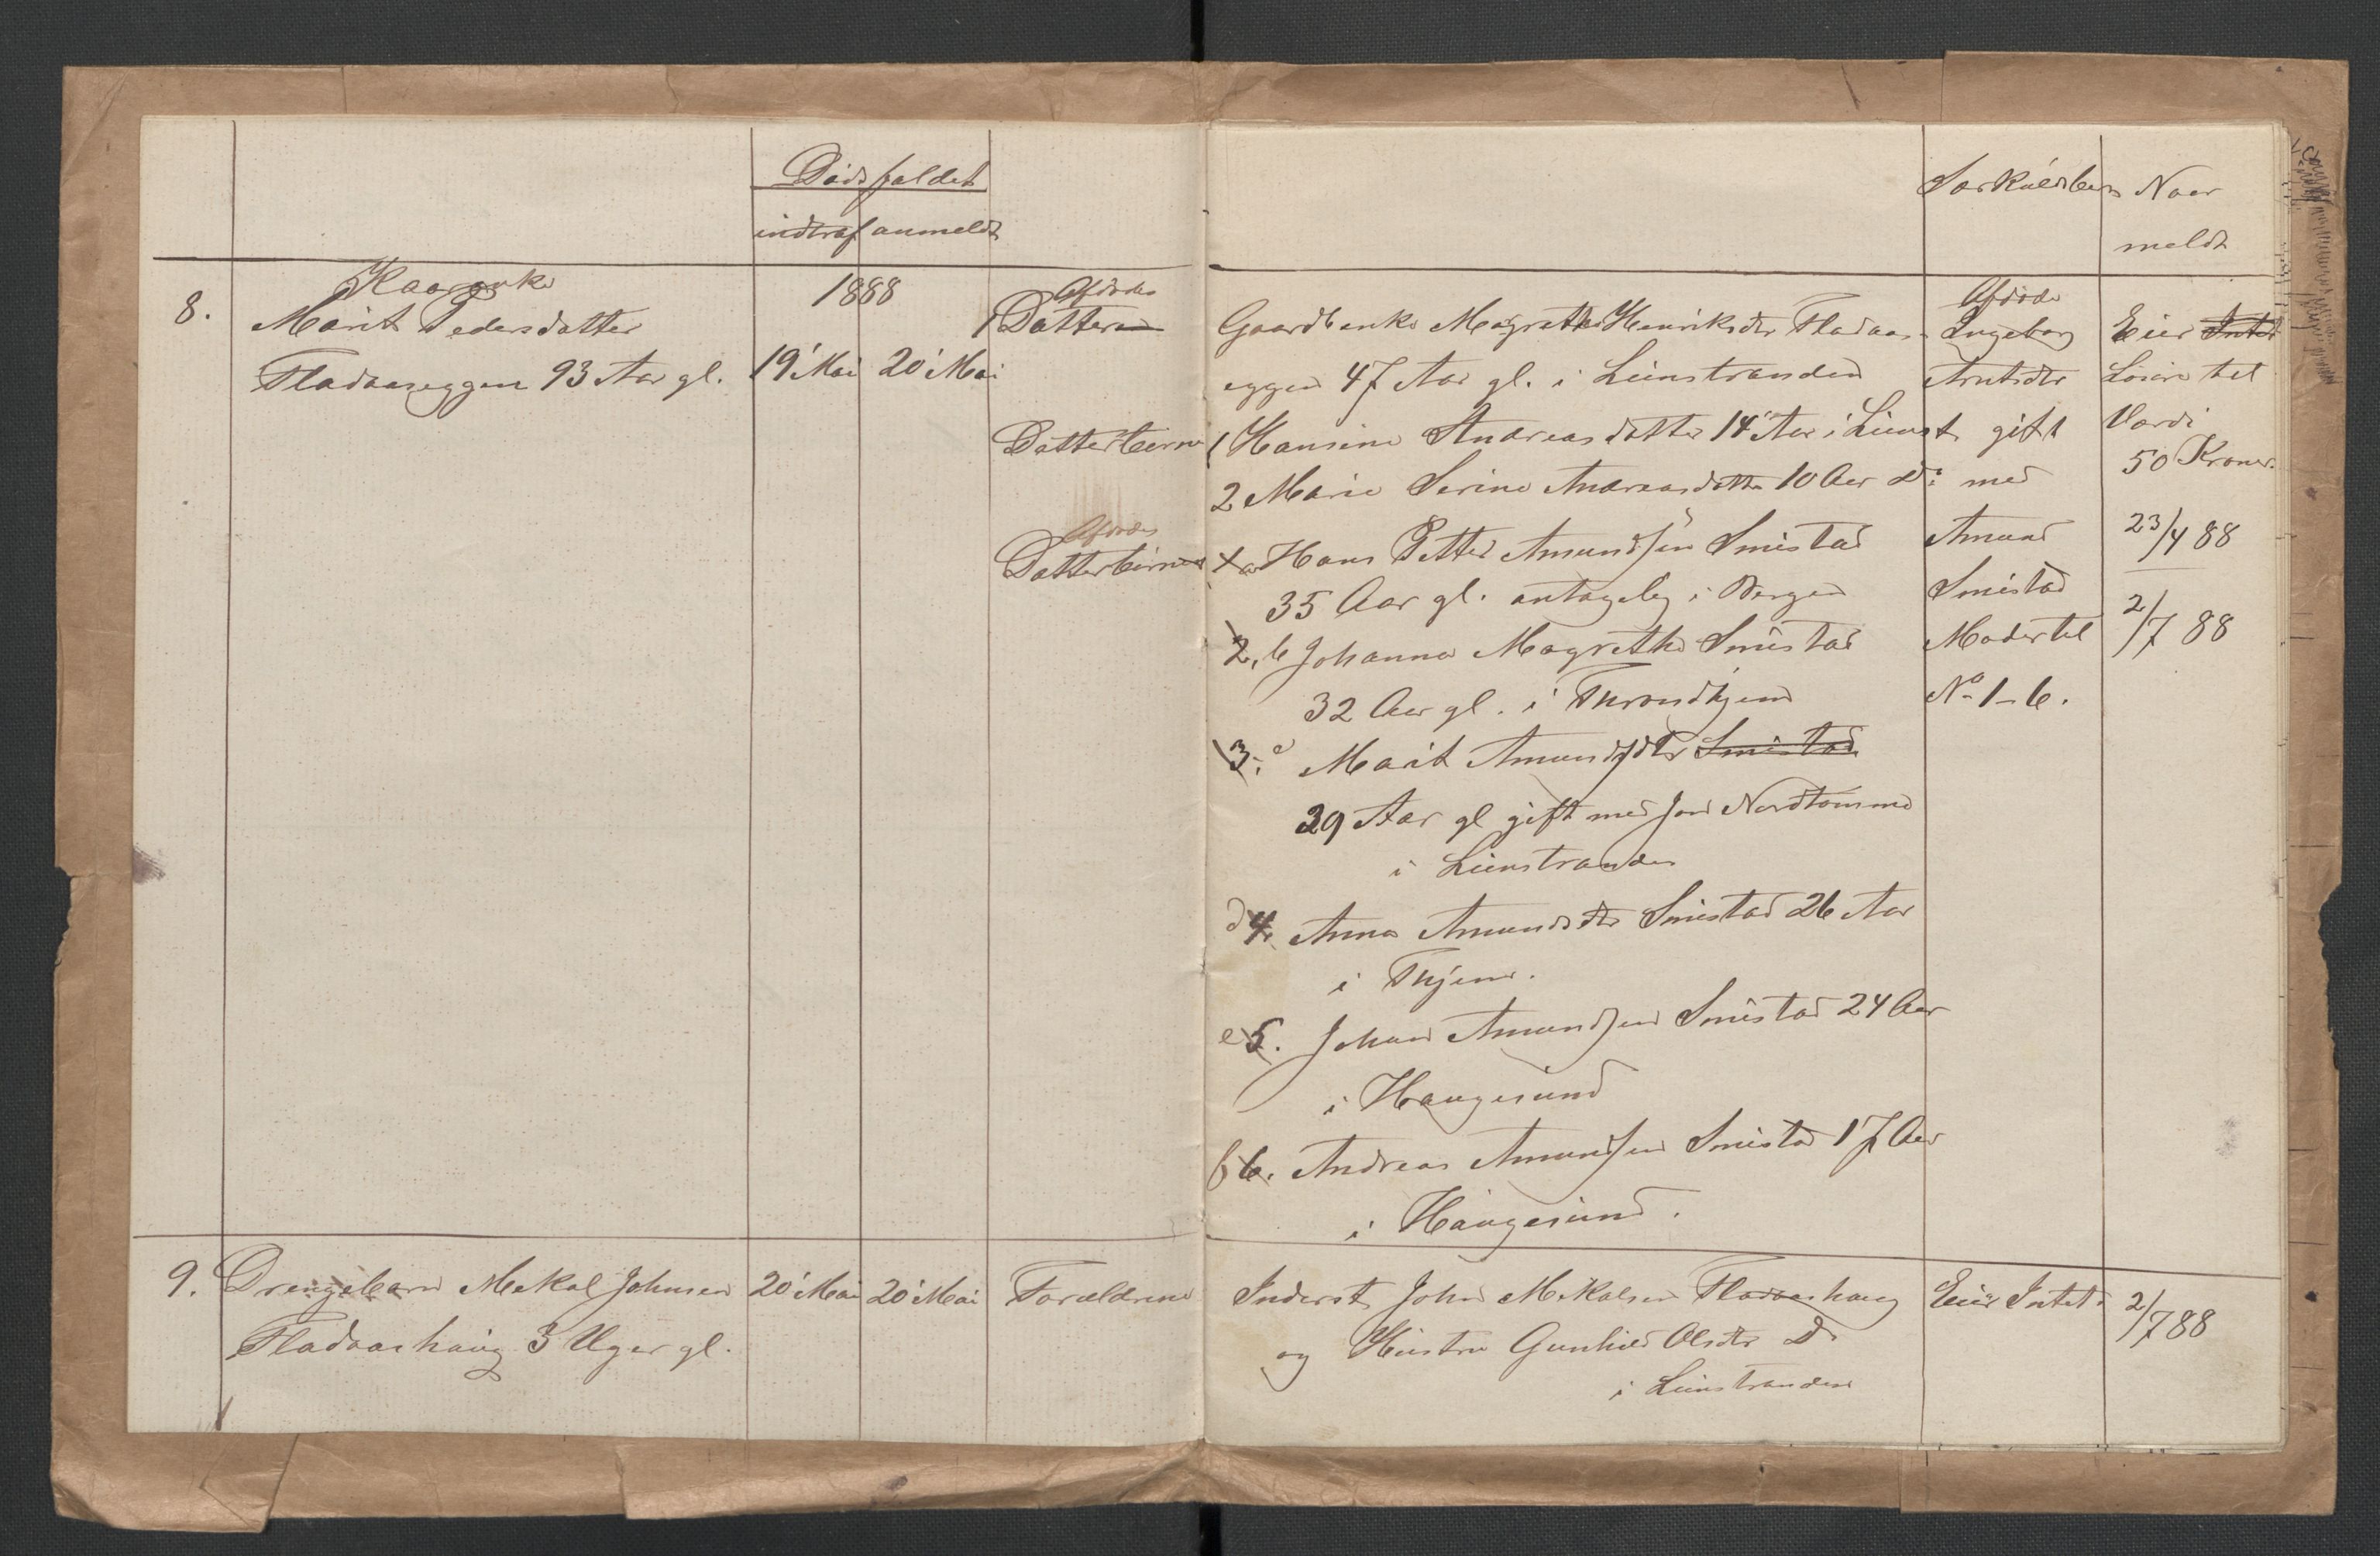 Dødsfaldet
indtraf anmeldt
Særkuldbørn
meldt
8.
Kaarenke
Marit Pedersdatter
Fladaaseggen 93 Aar gl.
1888
19' Mai 20' Mai
Afdødes
1 Datter
Gaardbenke Magrethe Henriksdtr Fladaas-
eggen 47 Aar gl. i Leinstranden
Datterbørn
1 Hansine Andreasdatter 14 Aar i Leinst
2 Marie Serine Andreasdatter 10 Aar do
Afdødes
Datterbørn
a Hans Petter Amundsen Smistad
35 Aar gl. antagelig i Bergen
2, b Johanna Magrethe Smistad
32 Aar gl. i Throndhjem
3. c Marit Amundsdtr Smistad
29 Aar gl gift med Jon Nordtømme
i Leinstranden
d 4. Anna Amundsdtr Smistad 26 Aar
i Thjem.
e 5. Johan Amundsen Smistad 24 Aar
i Haugesund
f 6. Andreas Amundsen Smistad 17 Aar
i Haugesund.
Afdøde
Ingeborg
Arntsdtr
gift
med
Amund
Smistad
Moder til
No 1-6.
Eier Intet
Løsøre til
Værdi
50 Kroner.
23/4 88
2/7 88
9. Drengebarn Mekal Johnsen
Fladaashaug 3 Uger gl.
20' Mai 20' Mai
Forældrene
Inderst John Mekalsen Fladaashaug
og Hustru Gunhild Olsdtr Do
i Leinstranden
Eier Intet
2/7 88